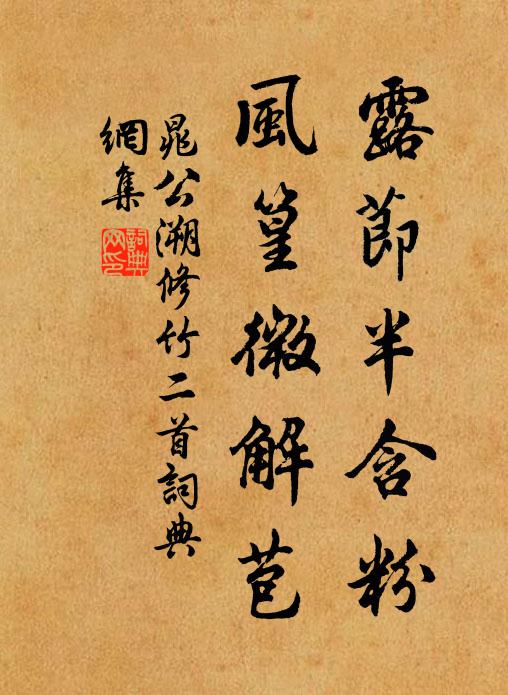 露節半含粉
風篁微解苞
晁公溯修竹二首詞典
網集
詞典
網印